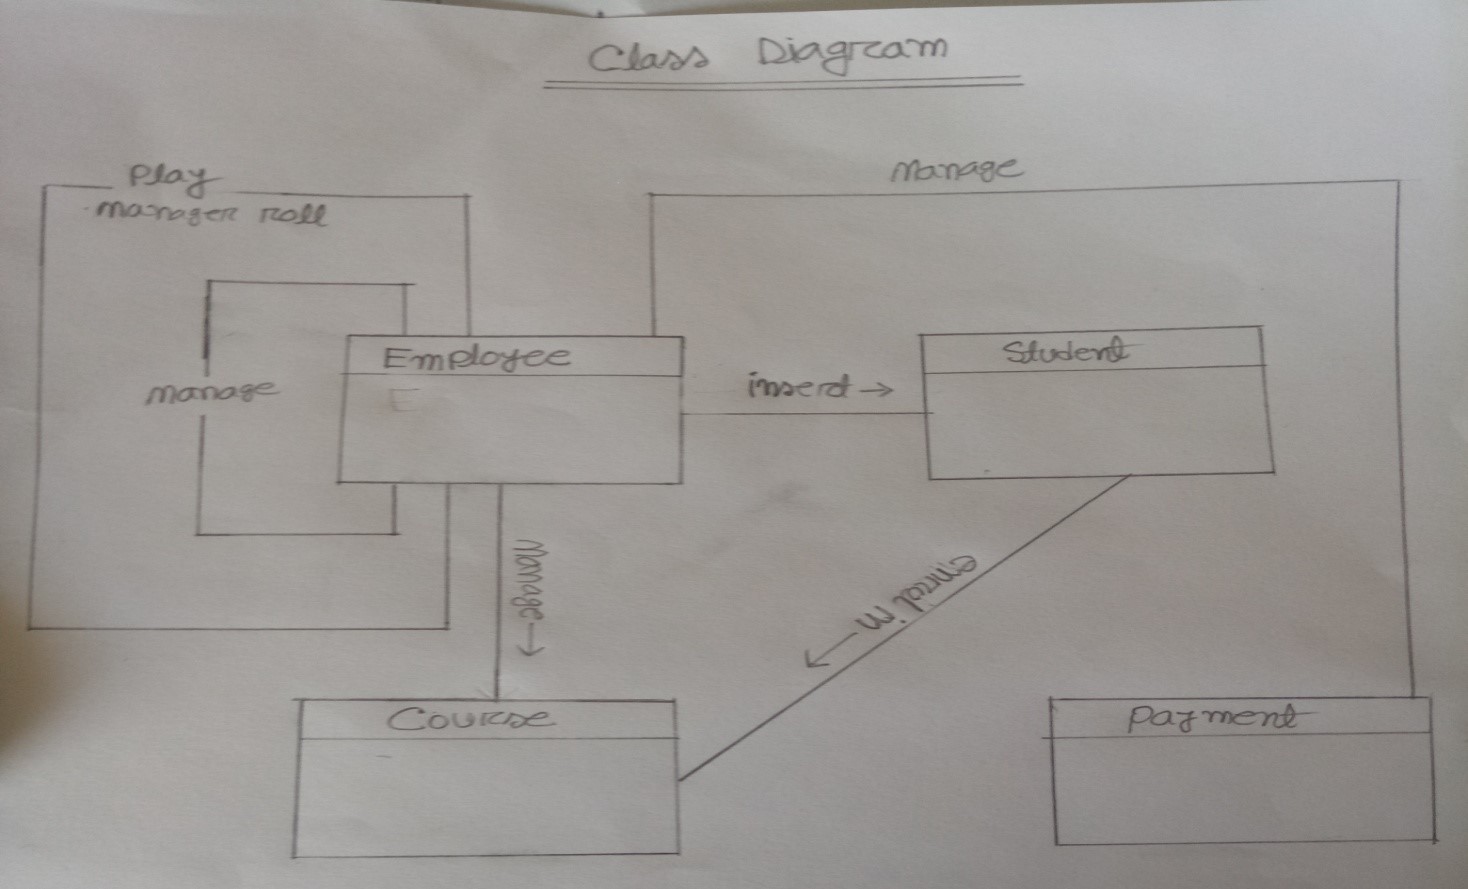 Class Diagram
Play
manager roll
manage
Employee
E
manage
insert →
Student
Manage →
enroll in
Course
Payment